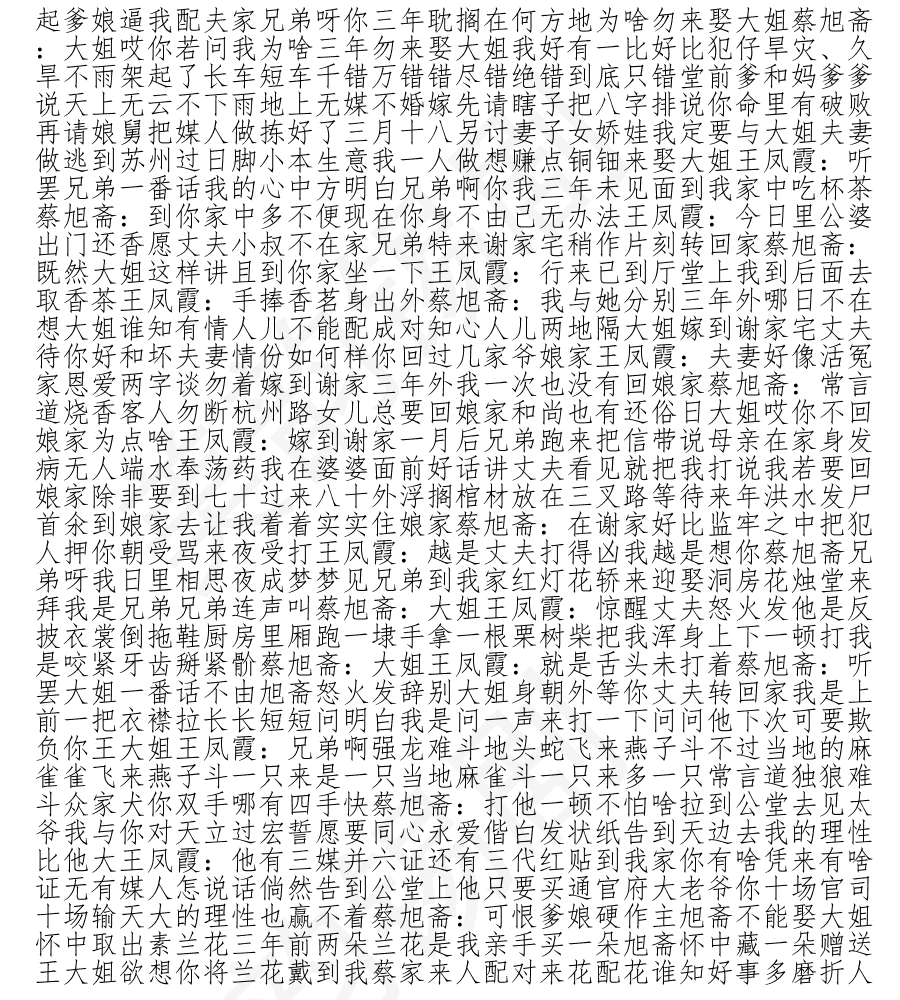 起爹娘逼我配夫家兄弟呀你三年耽搁在何方地为啥勿来娶大姐蔡旭斋
：大姐哎你若问我为啥三年勿来娶大姐我好有一比好比犯仔旱灾、久
旱不雨架起了长车短车千错万错错尽错绝错到底只错堂前爹和妈爹爹
说天上无云不下雨地上无媒不婚嫁先请瞎子把八字排说你命里有破败
再请娘舅把媒人做拣好了三月十八另讨妻子女娇娃我定要与大姐夫妻
做逃到苏州过日脚小本生意我一人做想赚点铜钿来娶大姐王凤霞：听
罢兄弟一番话我的心中方明白兄弟啊你我三年未见面到我家中吃杯茶
蔡旭斋：到你家中多不便现在你身不由己无办法王凤霞：今日里公婆
出门还香愿丈夫小叔不在家兄弟特来谢家宅稍作片刻转回家蔡旭斋：
既然大姐这样讲且到你家坐一下王凤霞：行来已到厅堂上我到后面去
取香茶王凤霞：手捧香茗身出外蔡旭斋：我与她分别三年外哪日不在
想大姐谁知有情人儿不能配成对知心人儿两地隔大姐嫁到谢家宅丈夫
待你好和坏夫妻情份如何样你回过几家爷娘家王凤霞：夫妻好像活冤
家恩爱两字谈勿着嫁到谢家三年外我一次也没有回娘家蔡旭斋：常言
道烧香客人勿断杭州路女儿总要回娘家和尚也有还俗日大姐哎你不回
娘家为点啥王凤霞：嫁到谢家一月后兄弟跑来把信带说母亲在家身发
病无人端水奉荡药我在婆婆面前好话讲丈夫看见就把我打说我若要回
娘家除非要到七十过来八十外浮搁棺材放在三叉路等待来年洪水发尸
首汆到娘家去让我着着实实住娘家蔡旭斋：在谢家好比监牢之中把犯
人押你朝受骂来夜受打王凤霞：越是丈夫打得凶我越是想你蔡旭斋兄
弟呀我日里相思夜成梦梦见兄弟到我家红灯花轿来迎娶洞房花烛堂来
拜我是兄弟兄弟连声叫蔡旭斋：大姐王凤霞：惊醒丈夫怒火发他是反
披衣裳倒拖鞋厨房里厢跑一埭手拿一根栗树柴把我浑身上下一顿打我
是咬紧牙齿掰紧骱蔡旭斋：大姐王凤霞：就是舌头未打着蔡旭斋：听
罢大姐一番话不由旭斋怒火发辞别大姐身朝外等你丈夫转回家我是上
前一把衣襟拉长长短短问明白我是问一声来打一下问问他下次可要欺
负你王大姐王凤霞：兄弟啊强龙难斗地头蛇飞来燕子斗不过当地的麻
雀雀飞来燕子斗一只来是一只当地麻雀斗一只来多一只常言道独狼难
斗众家犬你双手哪有四手快蔡旭斋：打他一顿不怕啥拉到公堂去见太
爷我与你对天立过宏誓愿要同心永爱偕白发状纸告到天边去我的理性
比他大王凤霞：他有三媒并六证还有三代红贴到我家你有啥凭来有啥
证无有媒人怎说话倘然告到公堂上他只要买通官府大老爷你十场官司
十场输天大的理性也赢不着蔡旭斋：可恨爹娘硬作主旭斋不能娶大姐
怀中取出素兰花三年前两朵兰花是我亲手买一朵旭斋怀中藏一朵赠送
王大姐欲想你将兰花戴到我蔡家来人配对来花配花谁知好事多磨折人